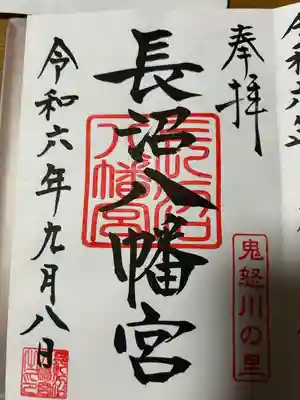 奉拝
鬼怒川の里
長沼八幡宮
長沼八幡宮
令和六年九月八日
令和六年